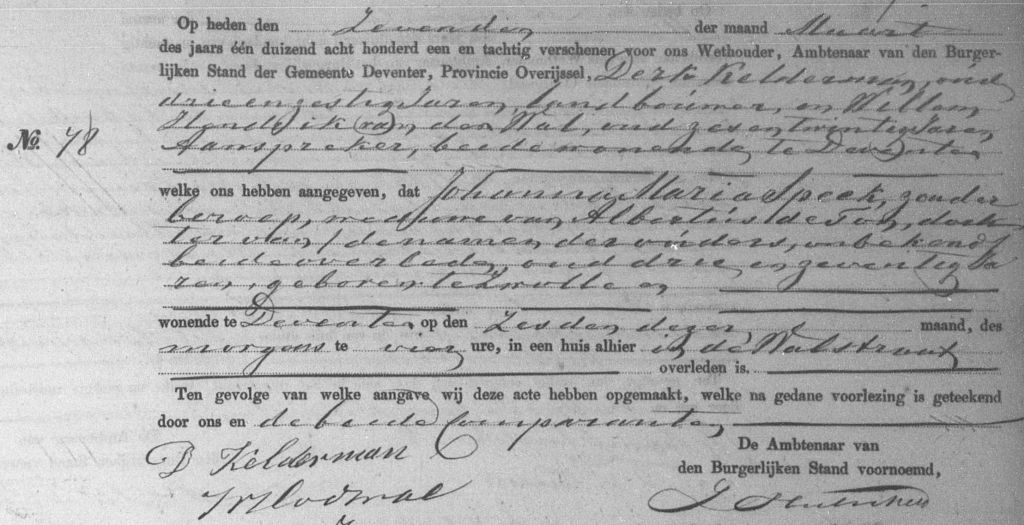 Op heden den zevenden der maand Maart
des jaars één duizend acht honderd een en tachtig verschenen voor ons Wethouder, Ambtenaar van den Burger-
lijken Stand der Gemeente Deventer, Provincie Overijssel, Derk Kelderman, oud
drie en zestig Jaren, landbouwer, en Willem
Hendrik van der Wal, oud zes en twintig Jaren
No. 78 Aanspreker, beide wonende te Deventer
welke ons hebben aangegeven, dat Johanna Maria Speek, zonder
beroep, weduwe van Albertus de , doch
ter van / de namen der ouders, onbekend /
beide overleden, oud drie en zeventig Ja
ren, geboren te Zwolle en
wonende te Deventer op den Zesden dezer maand, des
morgens te vier ure, in een huis alhier in de Walstraat
overleden is.
Ten gevolge van welke aangave wij deze acte hebben opgemaakt, welke na gedane voorlezing is geteekend
door ons en de beide Comparanten
De Ambtenaar van
den Burgerlijken Stand voornoemd,
D Kelderman